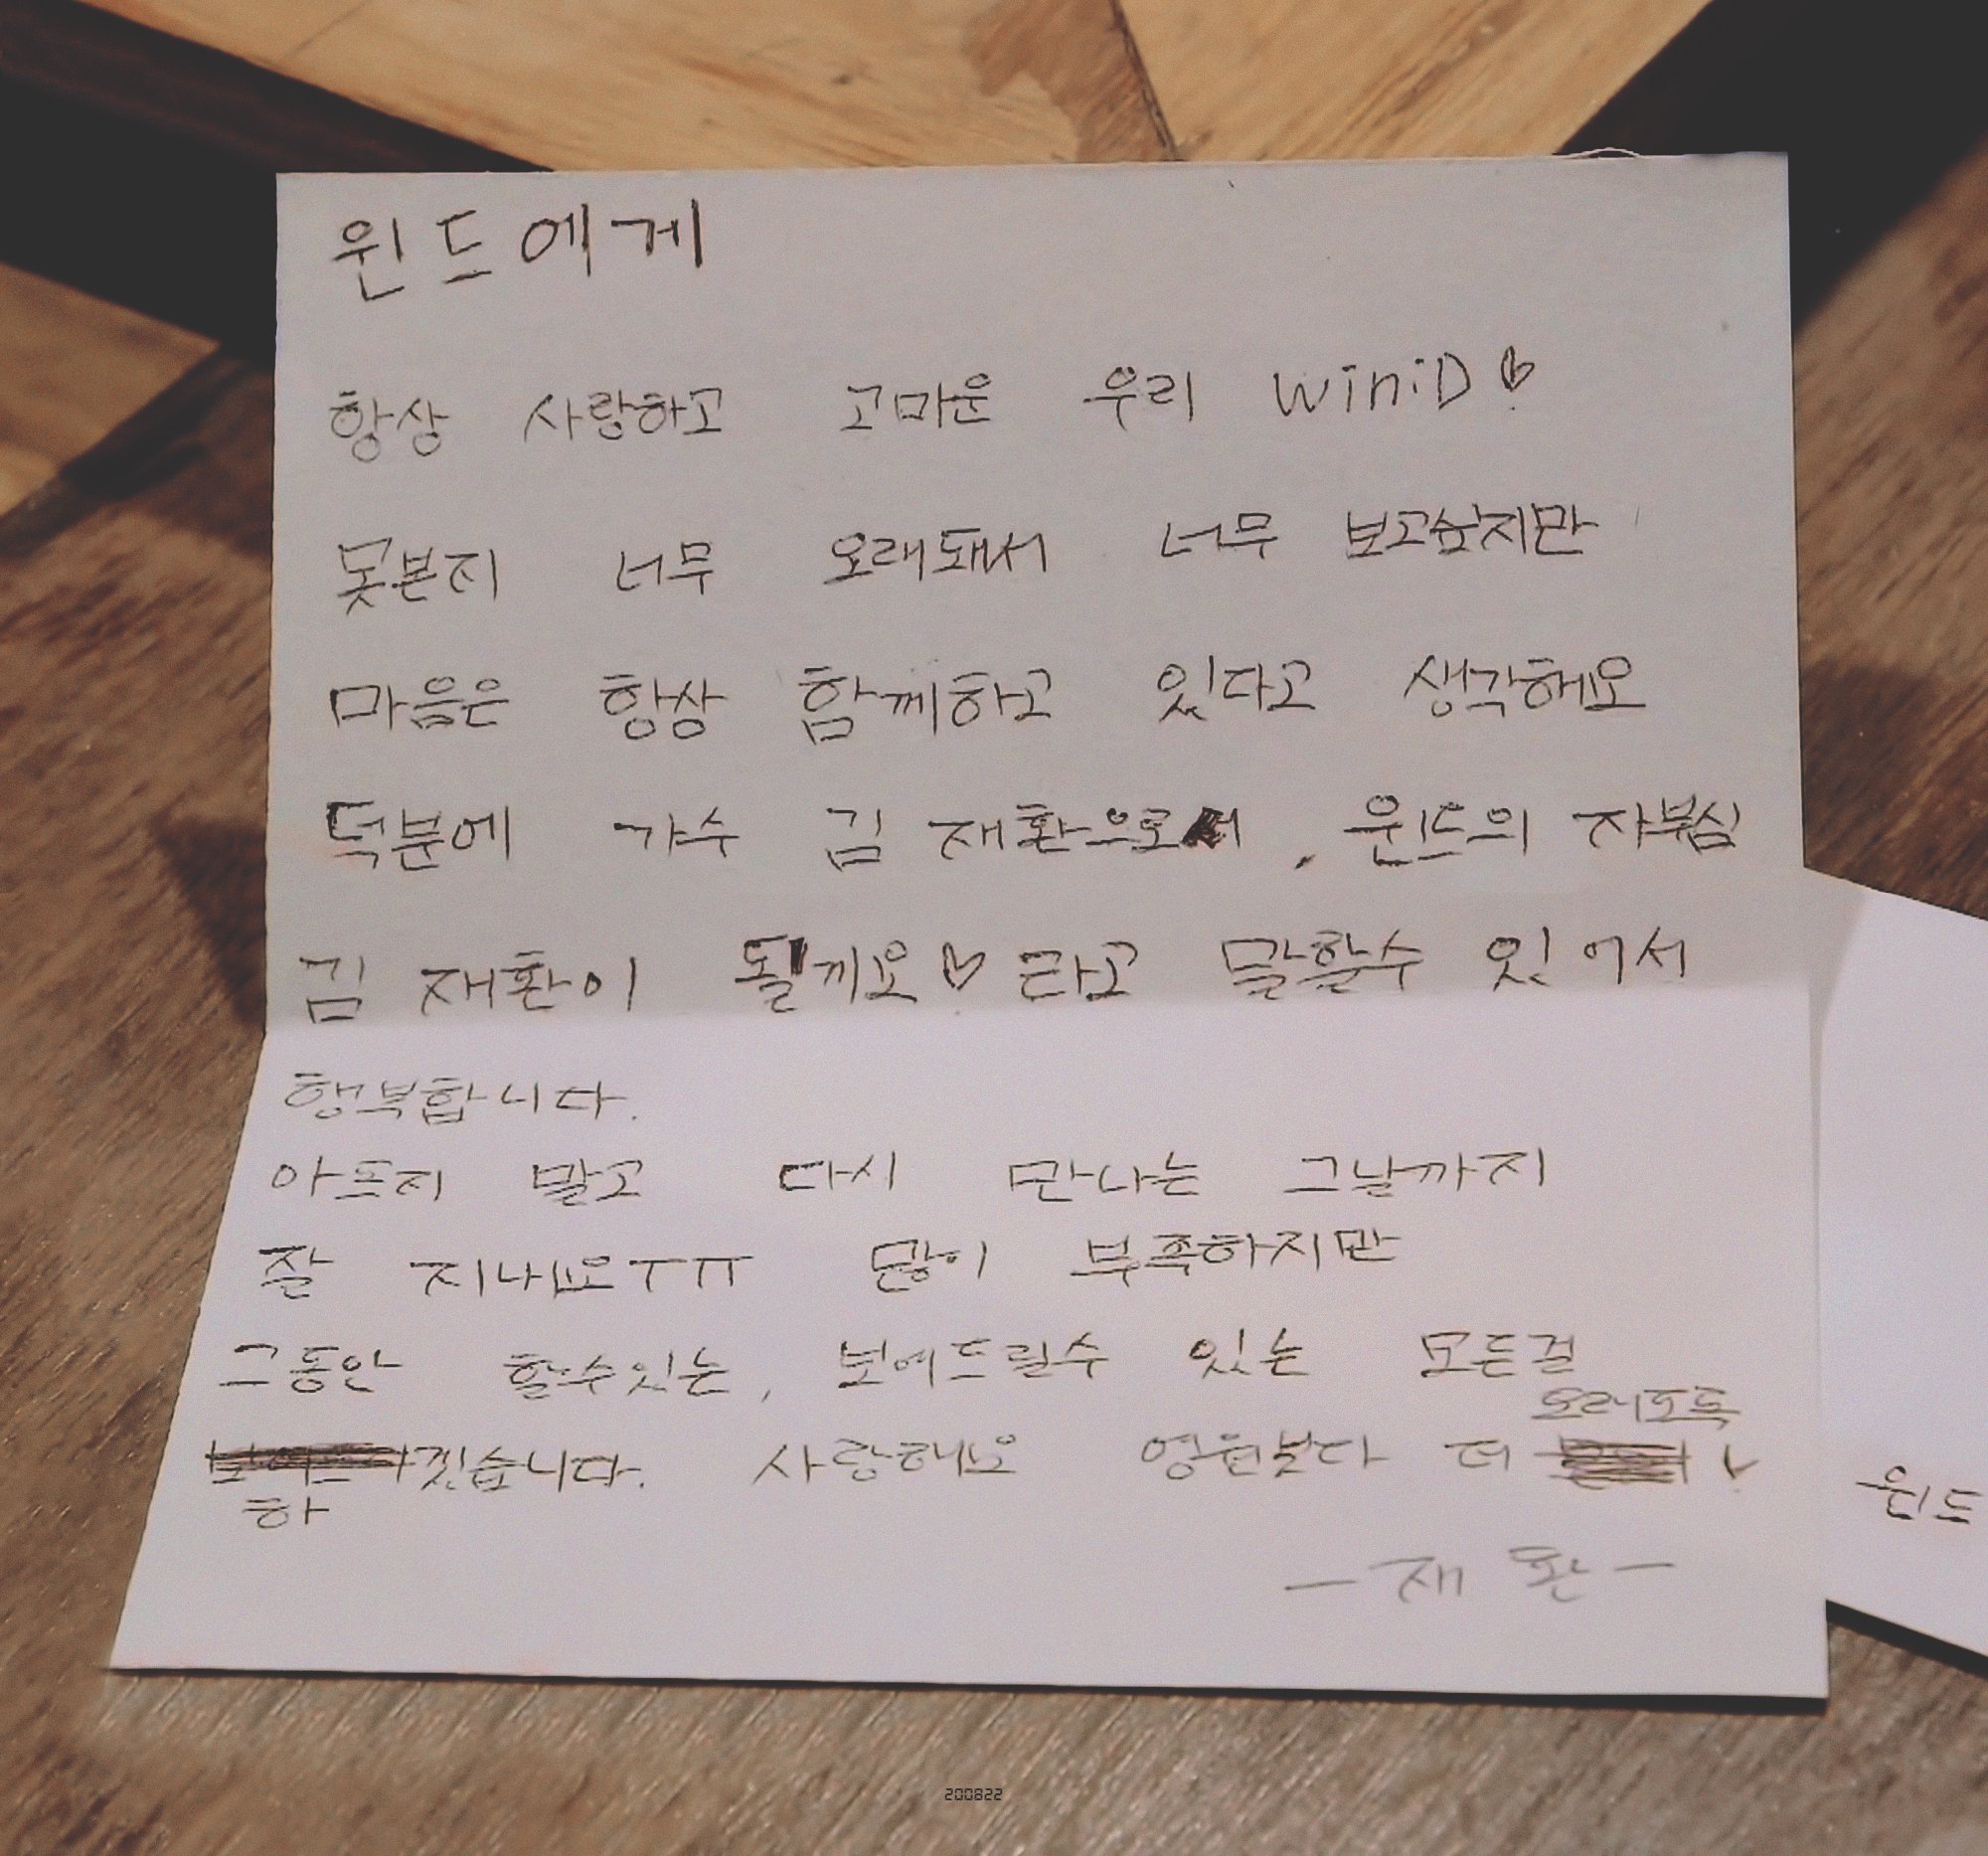 윈드에게
항상 사랑하고 고마운 우리 WiniD♡
못본지 너무 오래돼서 너무 보고싶지만
마음은 항상 함께하고 있다고 생각해요
덕분에 가수 김재환으로서, 윈드의 자부심
김재환이 될께요♡ 라고 말할수 있어서
행복합니다.
아프지 말고 다시 만나는 그날까지
잘 지내요ㅜㅠ 많이 부족하지만
그동안 할수있는, 보여드릴수 있는 모든걸
하겠습니다. 사랑해요 영원보다 더 오래오래♡
윈드
-재환-
200822